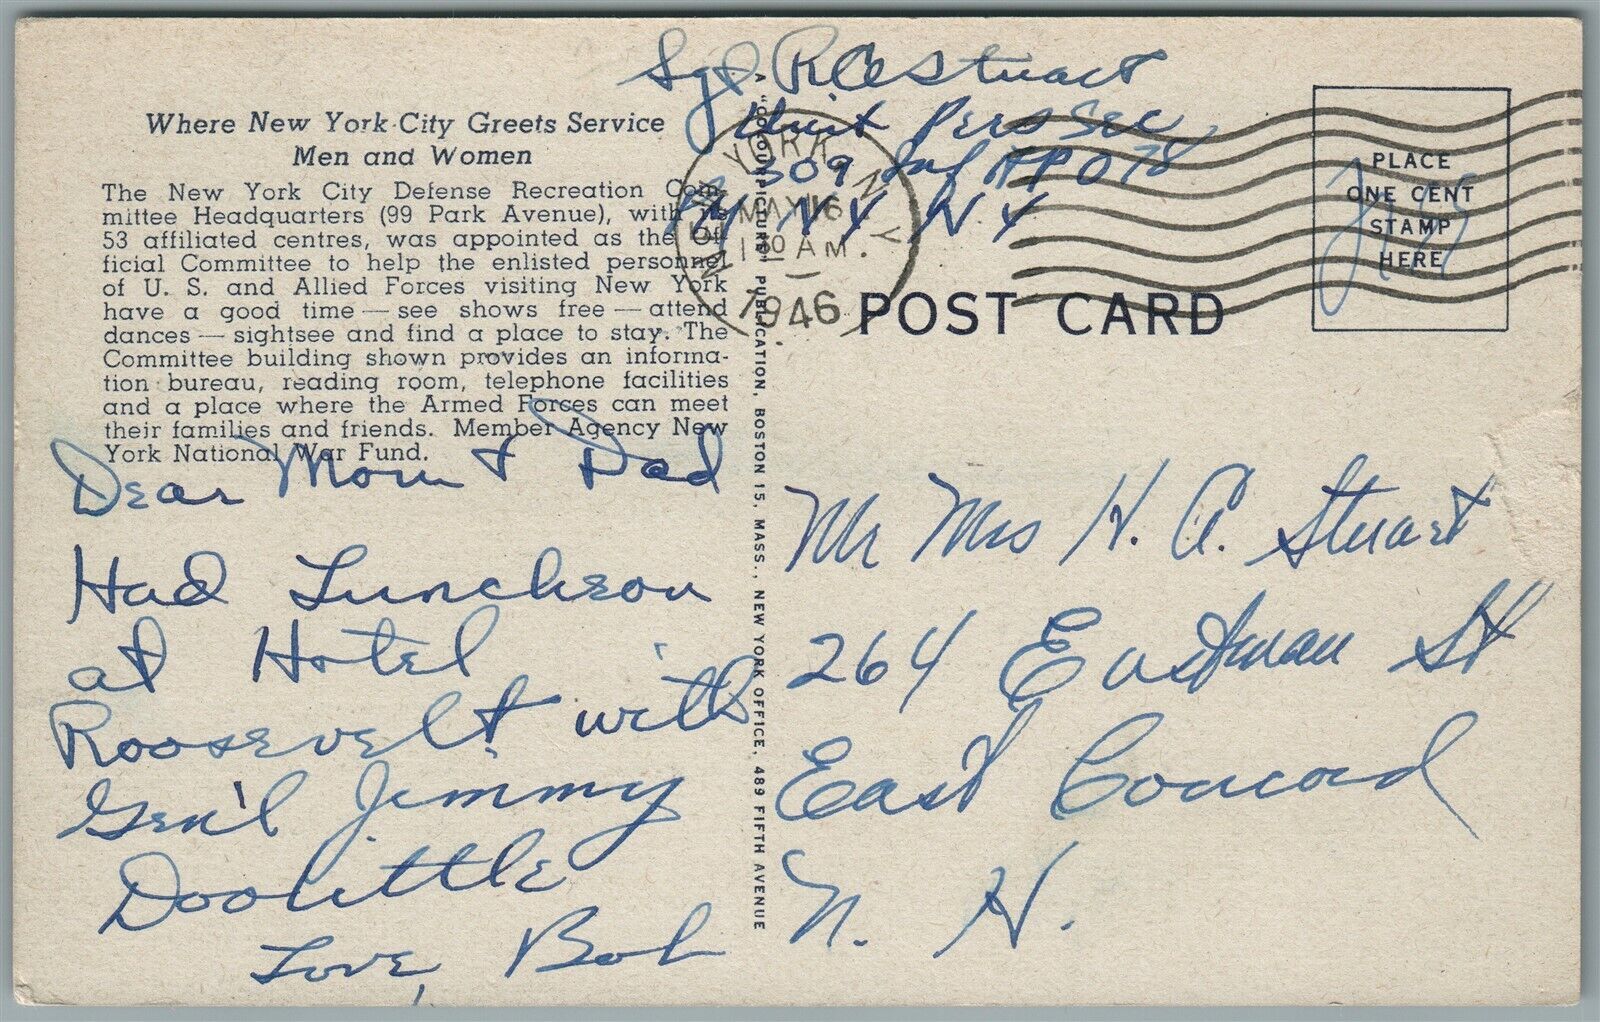 Sgt R C Stuart
Unit Pers Sec
309 Inf APO 78
PM NY NY
Where New York City Greets Service
Men and Women
The New York City Defense Recreation Com-
mittee Headquarters (99 Park Avenue), with its
53 affiliated centres, was appointed as the Of-
ficial Committee to help the enlisted personnel
of U. S. and Allied Forces visiting New York
have a good time — see shows free — attend
dances — sightsee and find a place to stay. The
Committee building shown provides an informa-
tion bureau, reading room, telephone facilities
and a place where the Armed Forces can meet
their families and friends. Member Agency New
York National War Fund.
NEW YORK, N. Y.
MAY 16
1 30 AM.
1946
POST CARD
PLACE
ONE CENT
STAMP
HERE
Free
A "COLOURPICTURE" PUBLICATION, BOSTON 15, MASS., NEW YORK OFFICE, 489 FIFTH AVENUE
Dear Mom & Dad
Had Luncheon
at Hotel
Roosevelt with
Gen'l Jimmy
Doolittle
Love, Bob
Mr Mrs H. A. Stuart
264 Eastman St
East Concord
N. H.